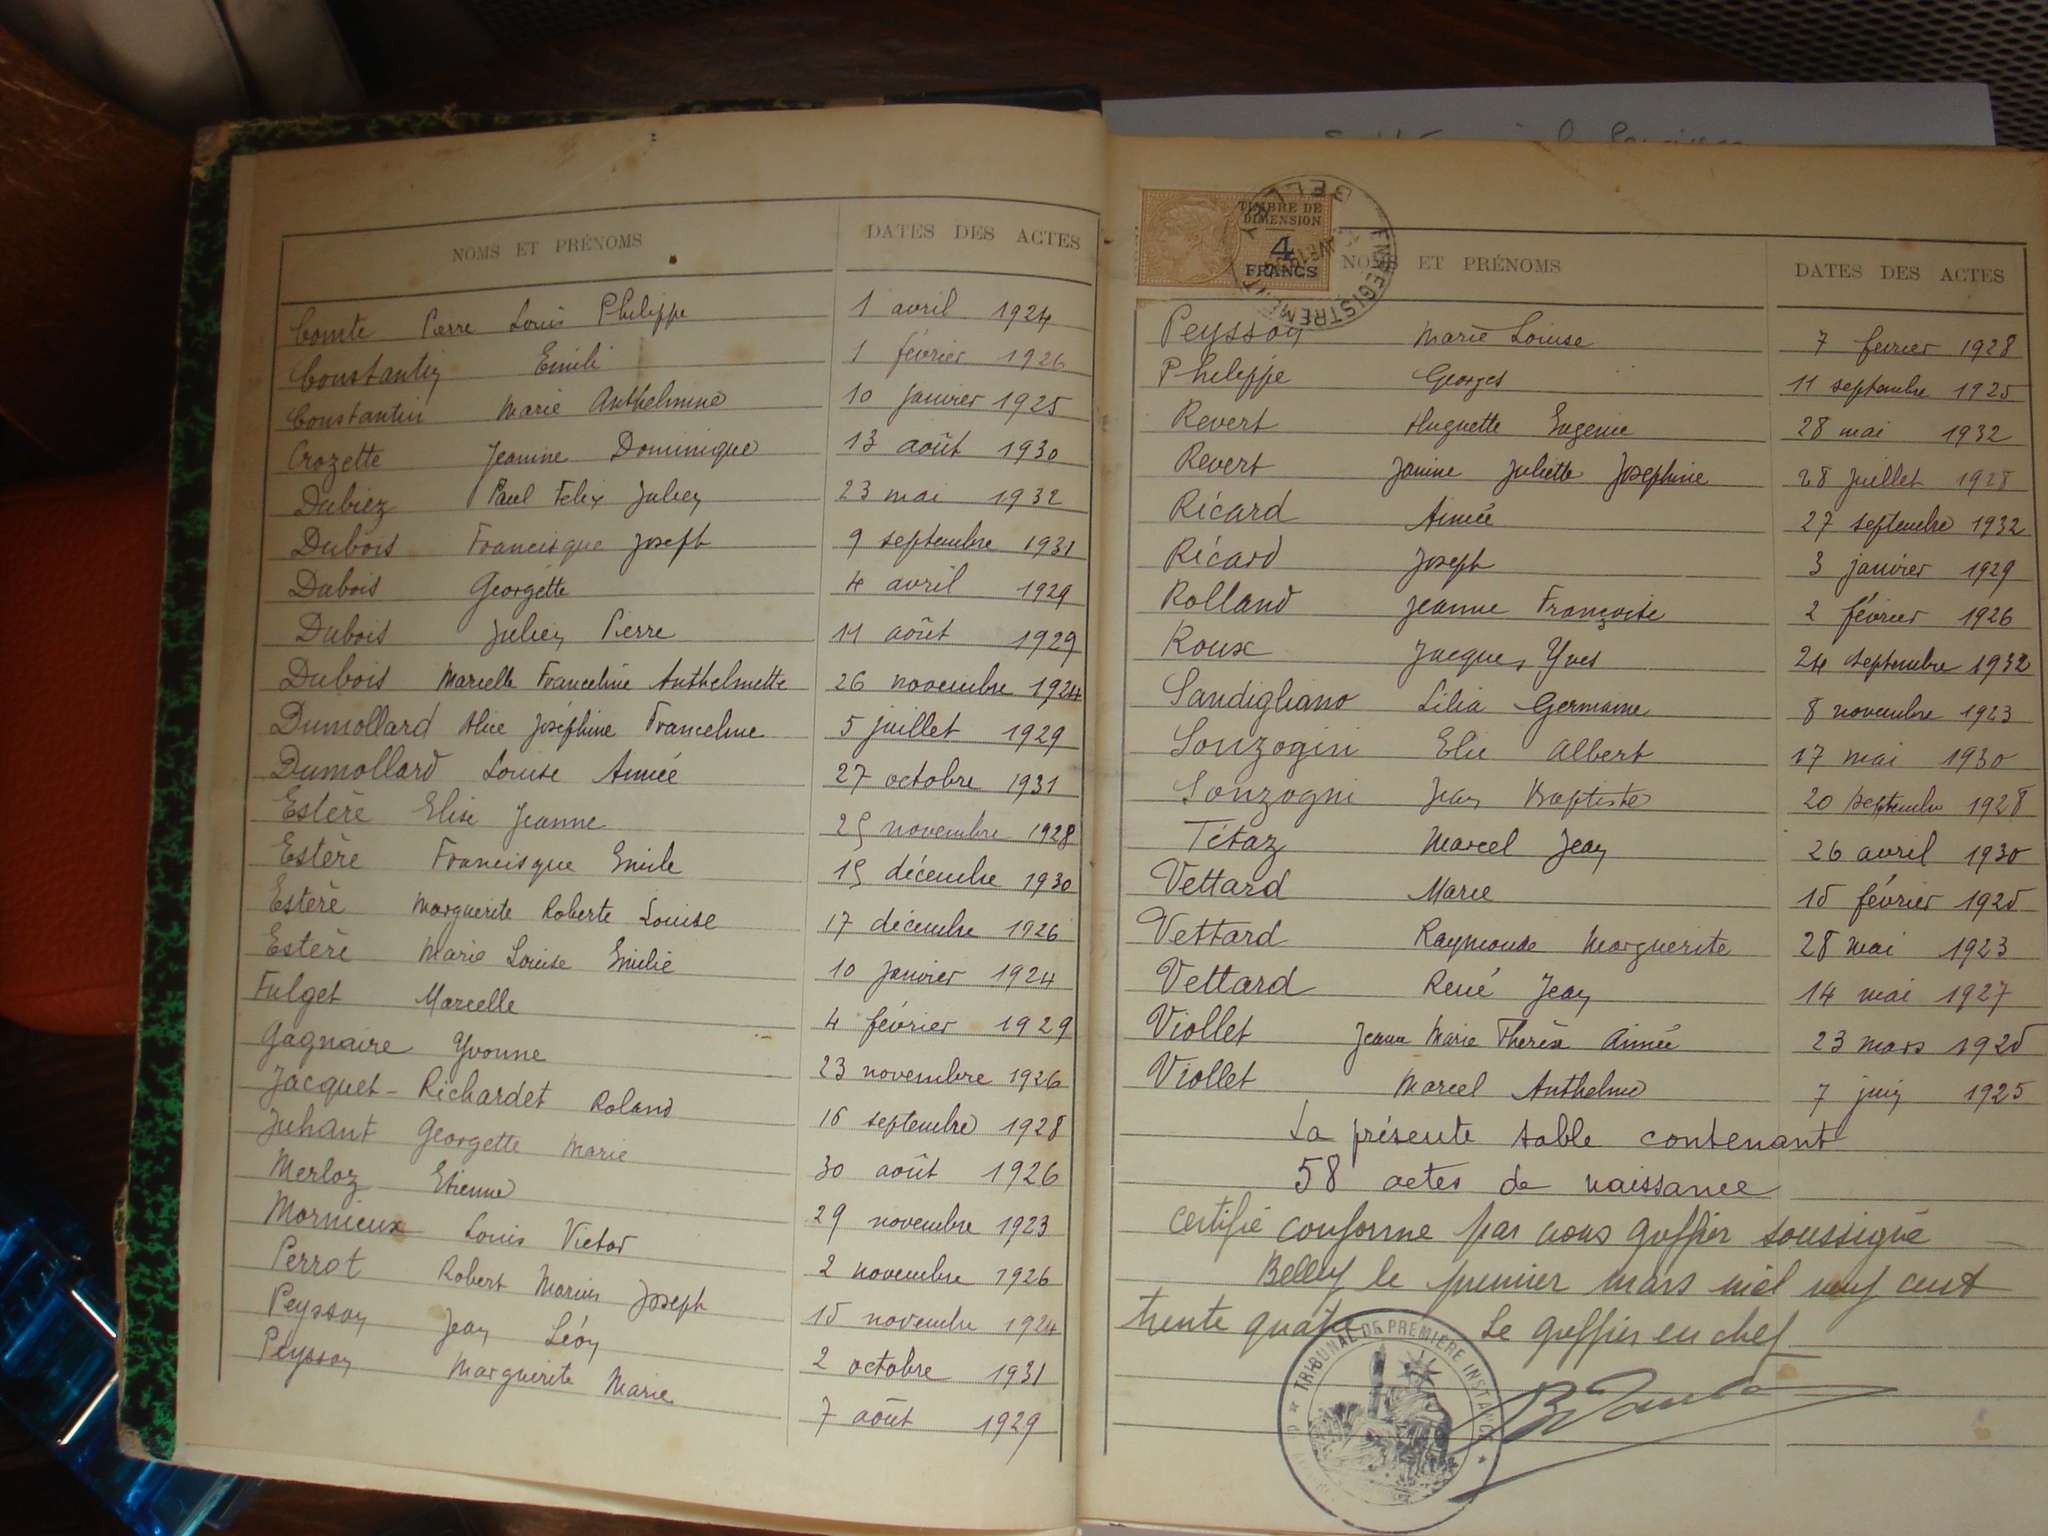 NOMS ET PRÉNOMS DATES DES ACTES
Comte Pierre Louis Philippe 1 avril 1924
Constantin Emili 1 février 1926
Constantin Marie Anthelmine 10 janvier 1925
Crozette Jeanine Dominique 13 août 1930
Dubiez Paul Felix Julien 23 mai 1932
Dubois Francisque Joseph 9 septembre 1931
Dubois Georgette 4 avril 1929
Dubois Julien Pierre 11 août 1929
Dubois Marcelle Franceline Anthelmette 26 novembre 1924
Dumollard Alice Joséphine Franceline 5 juillet 1929
Dumollard Louise Aimée 27 octobre 1931
Estère Elise Jeanne 25 novembre 1928
Estère Francisque Emile 15 décembre 1930
Estère Marguerite Roberte Louise 17 décembre 1926
Estère Marie Louise Emilie 10 janvier 1924
Fulget Marcelle 4 février 1929
Gagnaire Yvonne 23 novembre 1926
Jacquet-Richardet Roland 16 septembre 1928
Juhant Georgette Marie 30 août 1926
Merloz Etienne 29 novembre 1923
Mornieux Louis Victor 2 novembre 1926
Perrot Robert Marius Joseph 15 novembre 1924
Peysson Jean Léon 2 octobre 1931
Peysson Marguerite Marie 7 août 1929
TIMBRE DE
DIMENSION
4
FRANCS
ENREGISTREMENT
NOMS ET PRÉNOMS DATES DES ACTES
Peysson Marie Louise 7 février 1928
Philippe Georges 11 septembre 1925
Revert Huguette Eugenie 28 mai 1932
Revert Janine Juliette Josephine 28 juillet 1928
Ricard Aimée 27 septembre 1932
Ricard Joseph 3 janvier 1929
Rolland Jeanne Françoise 2 février 1926
Roux Jacques Yves 24 septembre 1932
Sandigliano Lilia Germaine 8 novembre 1923
Sonzogni Elie Albert 17 mai 1930
Sonzogni Jean Baptiste 20 septembre 1928
Tétaz Marcel Jean 26 avril 1930
Vettard Marie 15 février 1925
Vettard Raymonde Marguerite 28 mai 1923
Vettard René Jean 14 mai 1927
Viollet Jeanne Marie Thérèse Aimée 23 mars 1925
Viollet Marcel Anthelme 7 juin 1925
La présente table contenant
58 actes de naissance
certifié conforme par nous greffier soussigné
Belley le premier mars mil neuf cent
trente quatre Le greffier en chef
TRIBUNAL DE PREMIERE INSTANCE